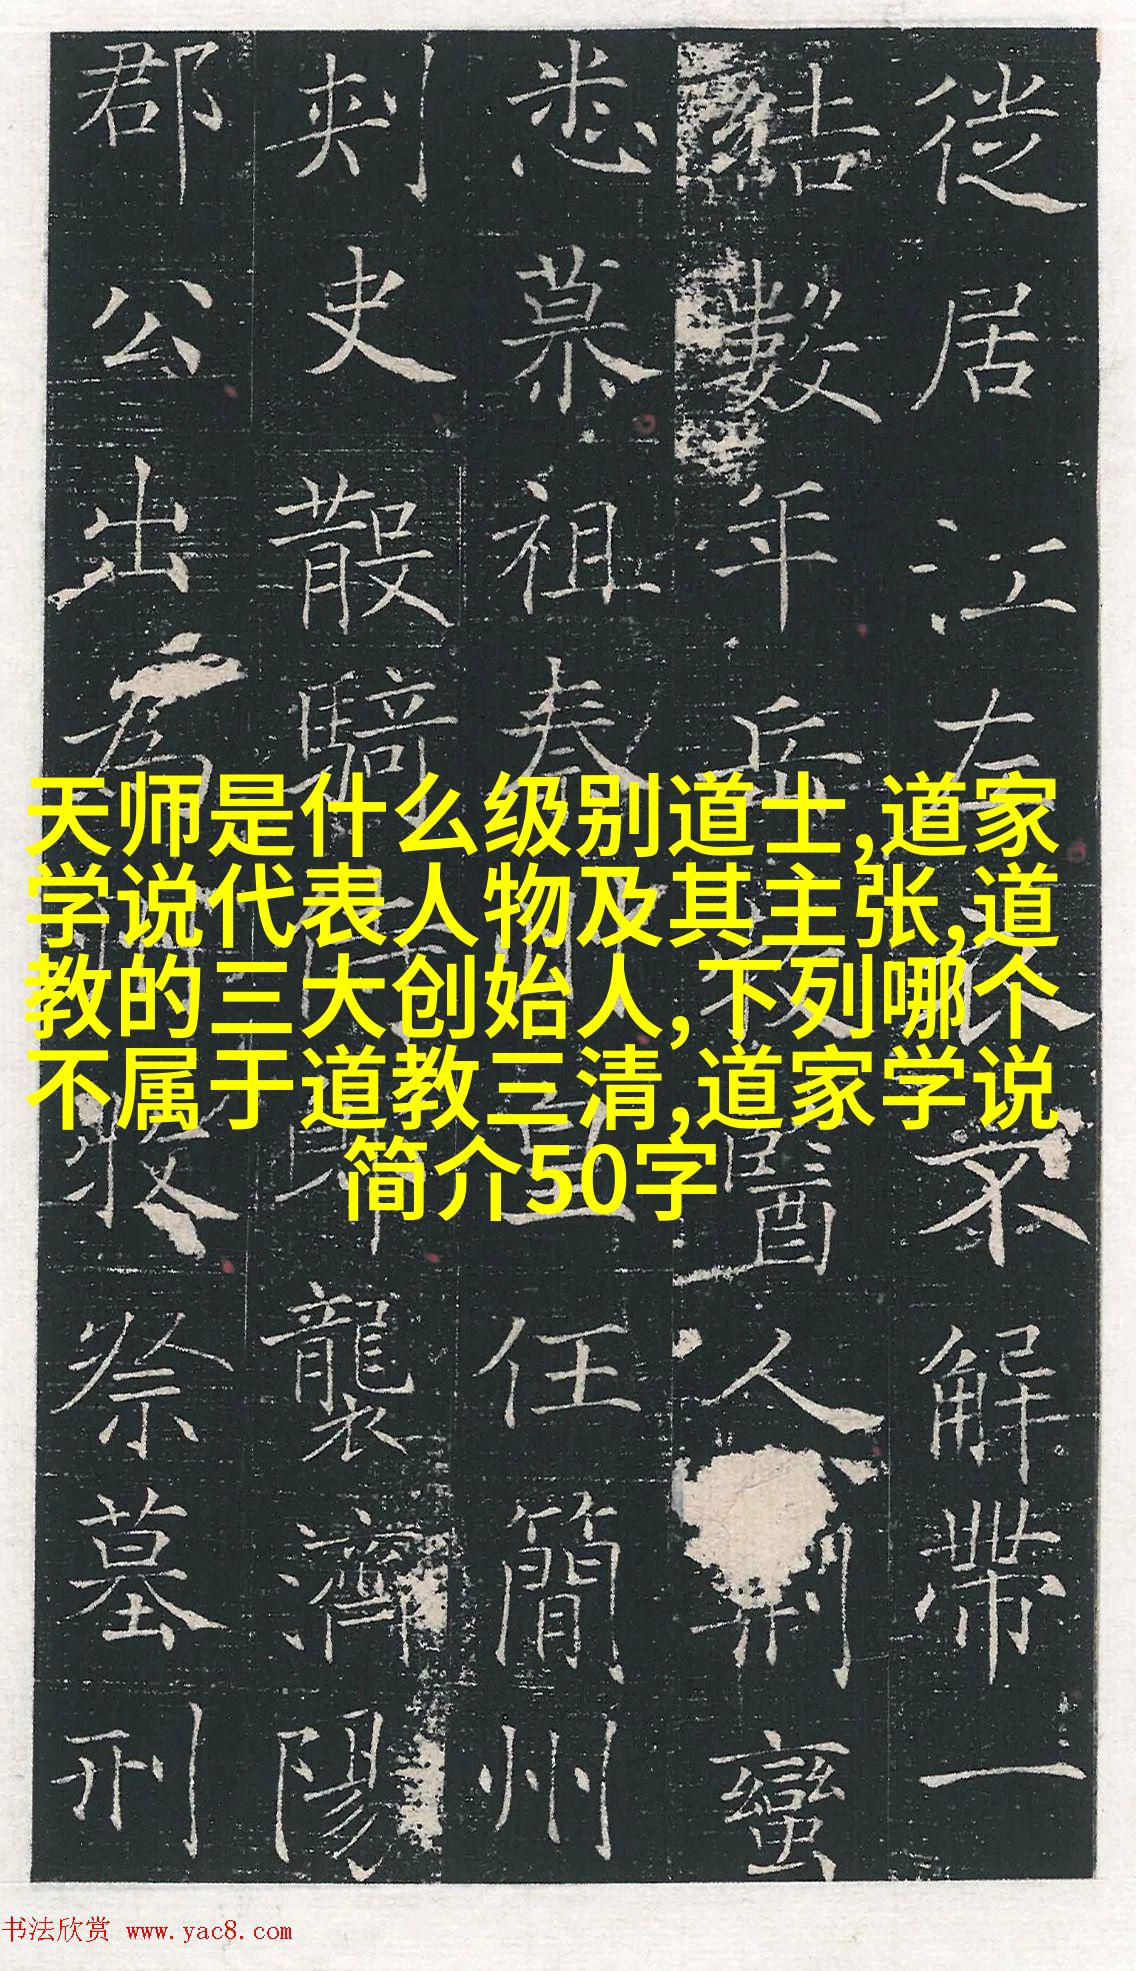 徙居江左
不解帶一
結數年
醫人
蠻
悉慕祖
任簡州
刺史散騎
襲濟陽
郡公出為
祭墓刑
天师是什么级别道士,道家
学说代表人物及其主张,道
教的三大创始人,下列哪个
不属于道教三清,道家学说
简介50字
书法欣赏 www.yac8.com